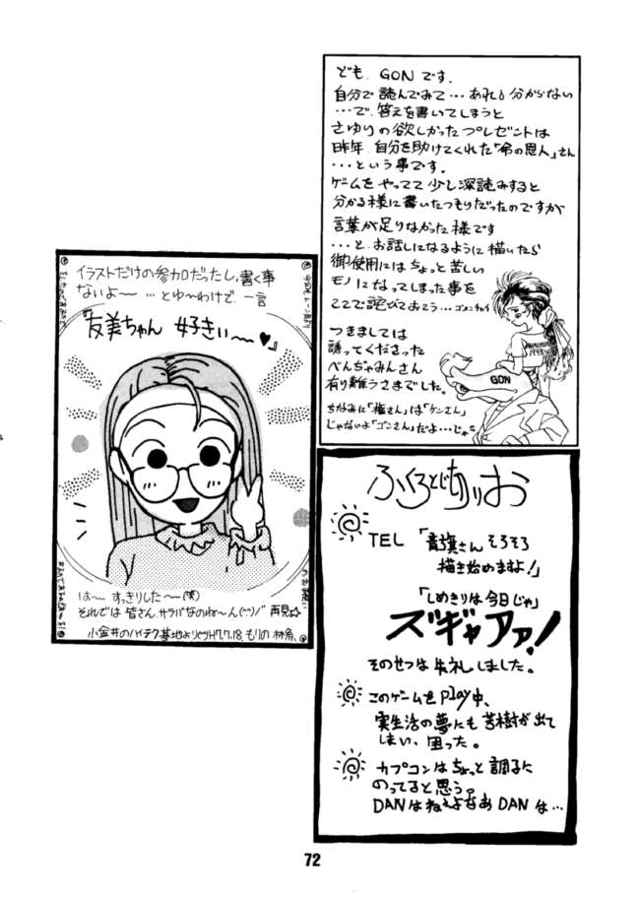 ども、GONです．
自分で読んでみて…あれ？分からない
…で、答えを書いてしまうと
さゆりの欲しかったプレゼントは
昨年、自分を助けてくれた「命の恩人」さん
…という事です．
ゲームをやってて少し深読みすると
分かる様に書いたつもりだったのですが
言葉が足りなかった様です
…と、お話しになるように描いたら
御使用にはちょっと苦しい
モノになってしまった事を
ここで詫びておこう…ゴメンナサイ
つきましては
誘ってくださった
べんぢゃみんさん
有り難うさまでした。
ちなみに「権さん」は「ケンさん」
じゃないよ「ゴンさん」だよ…じゃ
GON
イラストだけの参加だったし、書く事
ないよ～ …とゆ～わけで 一言
『友美ちゃん 好きぃ～♥』
は～ すっきりした～(笑)
それでは 皆さん、サラバなのね～ん(^^)/ 再見☆
小金井のハイテク基地より H7.7.18. もりの
ふくろとじあとりお
TEL「青旗さん そろそろ
描き始めますよ！」
「しめきりは今日じゃ」
ズギャアァ！
そのせつは失礼しました。
このゲームをplay中、
実生活の夢にも 苦樹が出て
しまい、困った。
カプコンは ちょっと 調子に
のってると思う。
DANはねぇよなあ DANは…
72